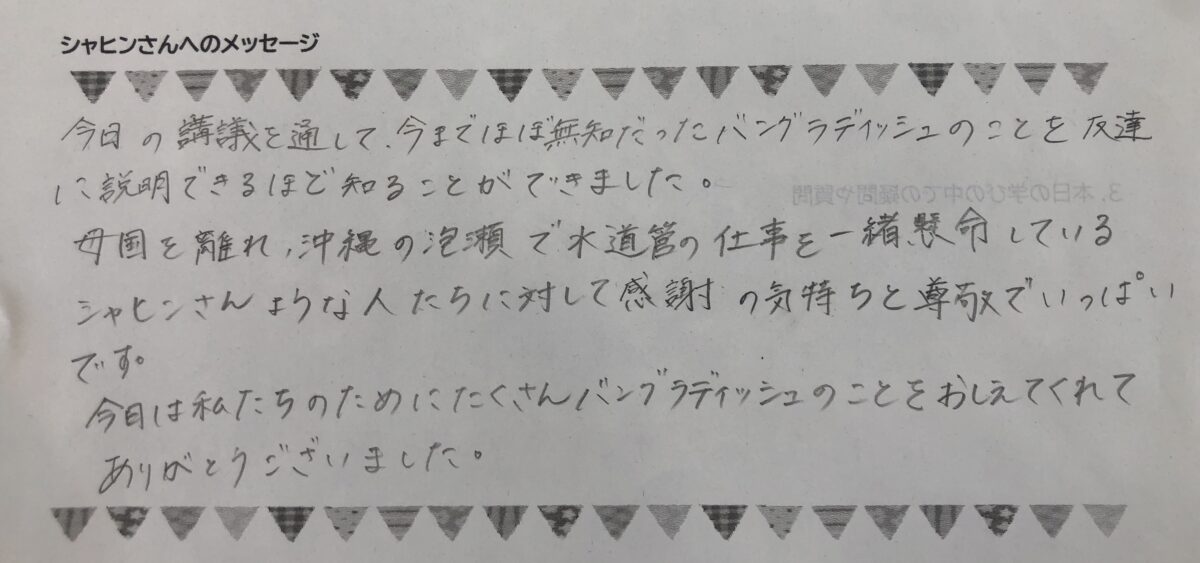 シャヒンさんへのメッセージ
今日の講議を通して、今までほぼ無知だったバングラディッシュのことを友達
に説明できるほど知ることができました。
3. 本日の学びの中での疑問や質問
母国を離れ、沖縄の泡瀬で水道管の仕事を一緒懸命している
シャヒンさんような人たちに対して感謝の気持ちと尊敬でいっぱい
です。
今日は私たちのためにたくさんバングラディッシュのことをおしえてくれて
ありがとうございました。